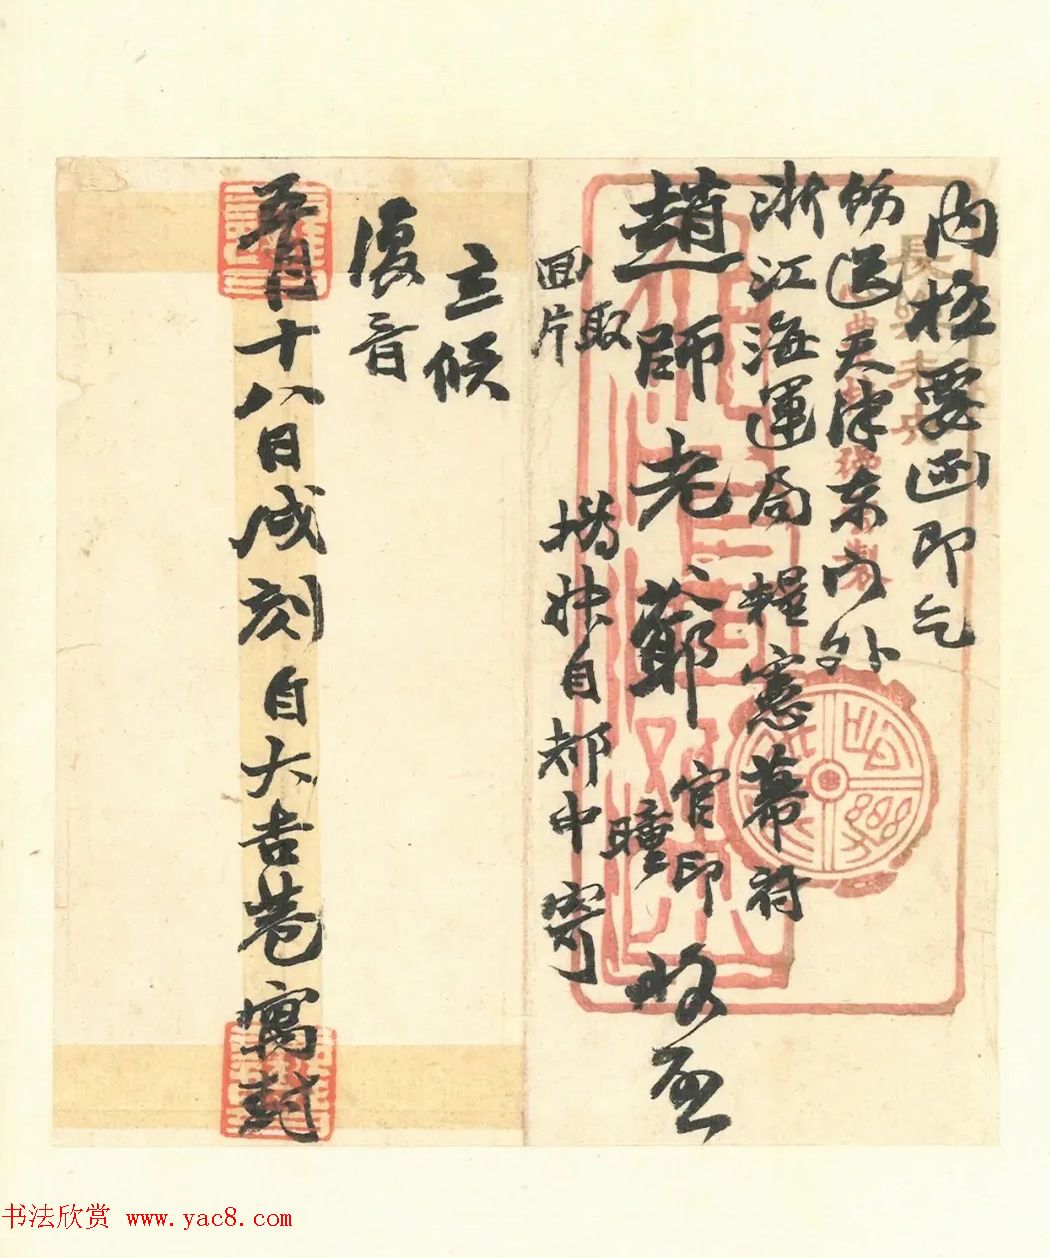 内極要函即乞
飭送天津東門外
浙江海運局糧憲幕府
趙師老爺官印 收啟
取
回片
携妹自都中寄
立候
復音
十八日戌刻自大吉巷寓封
長樂未央
製
书法欣赏 www.yac8.com